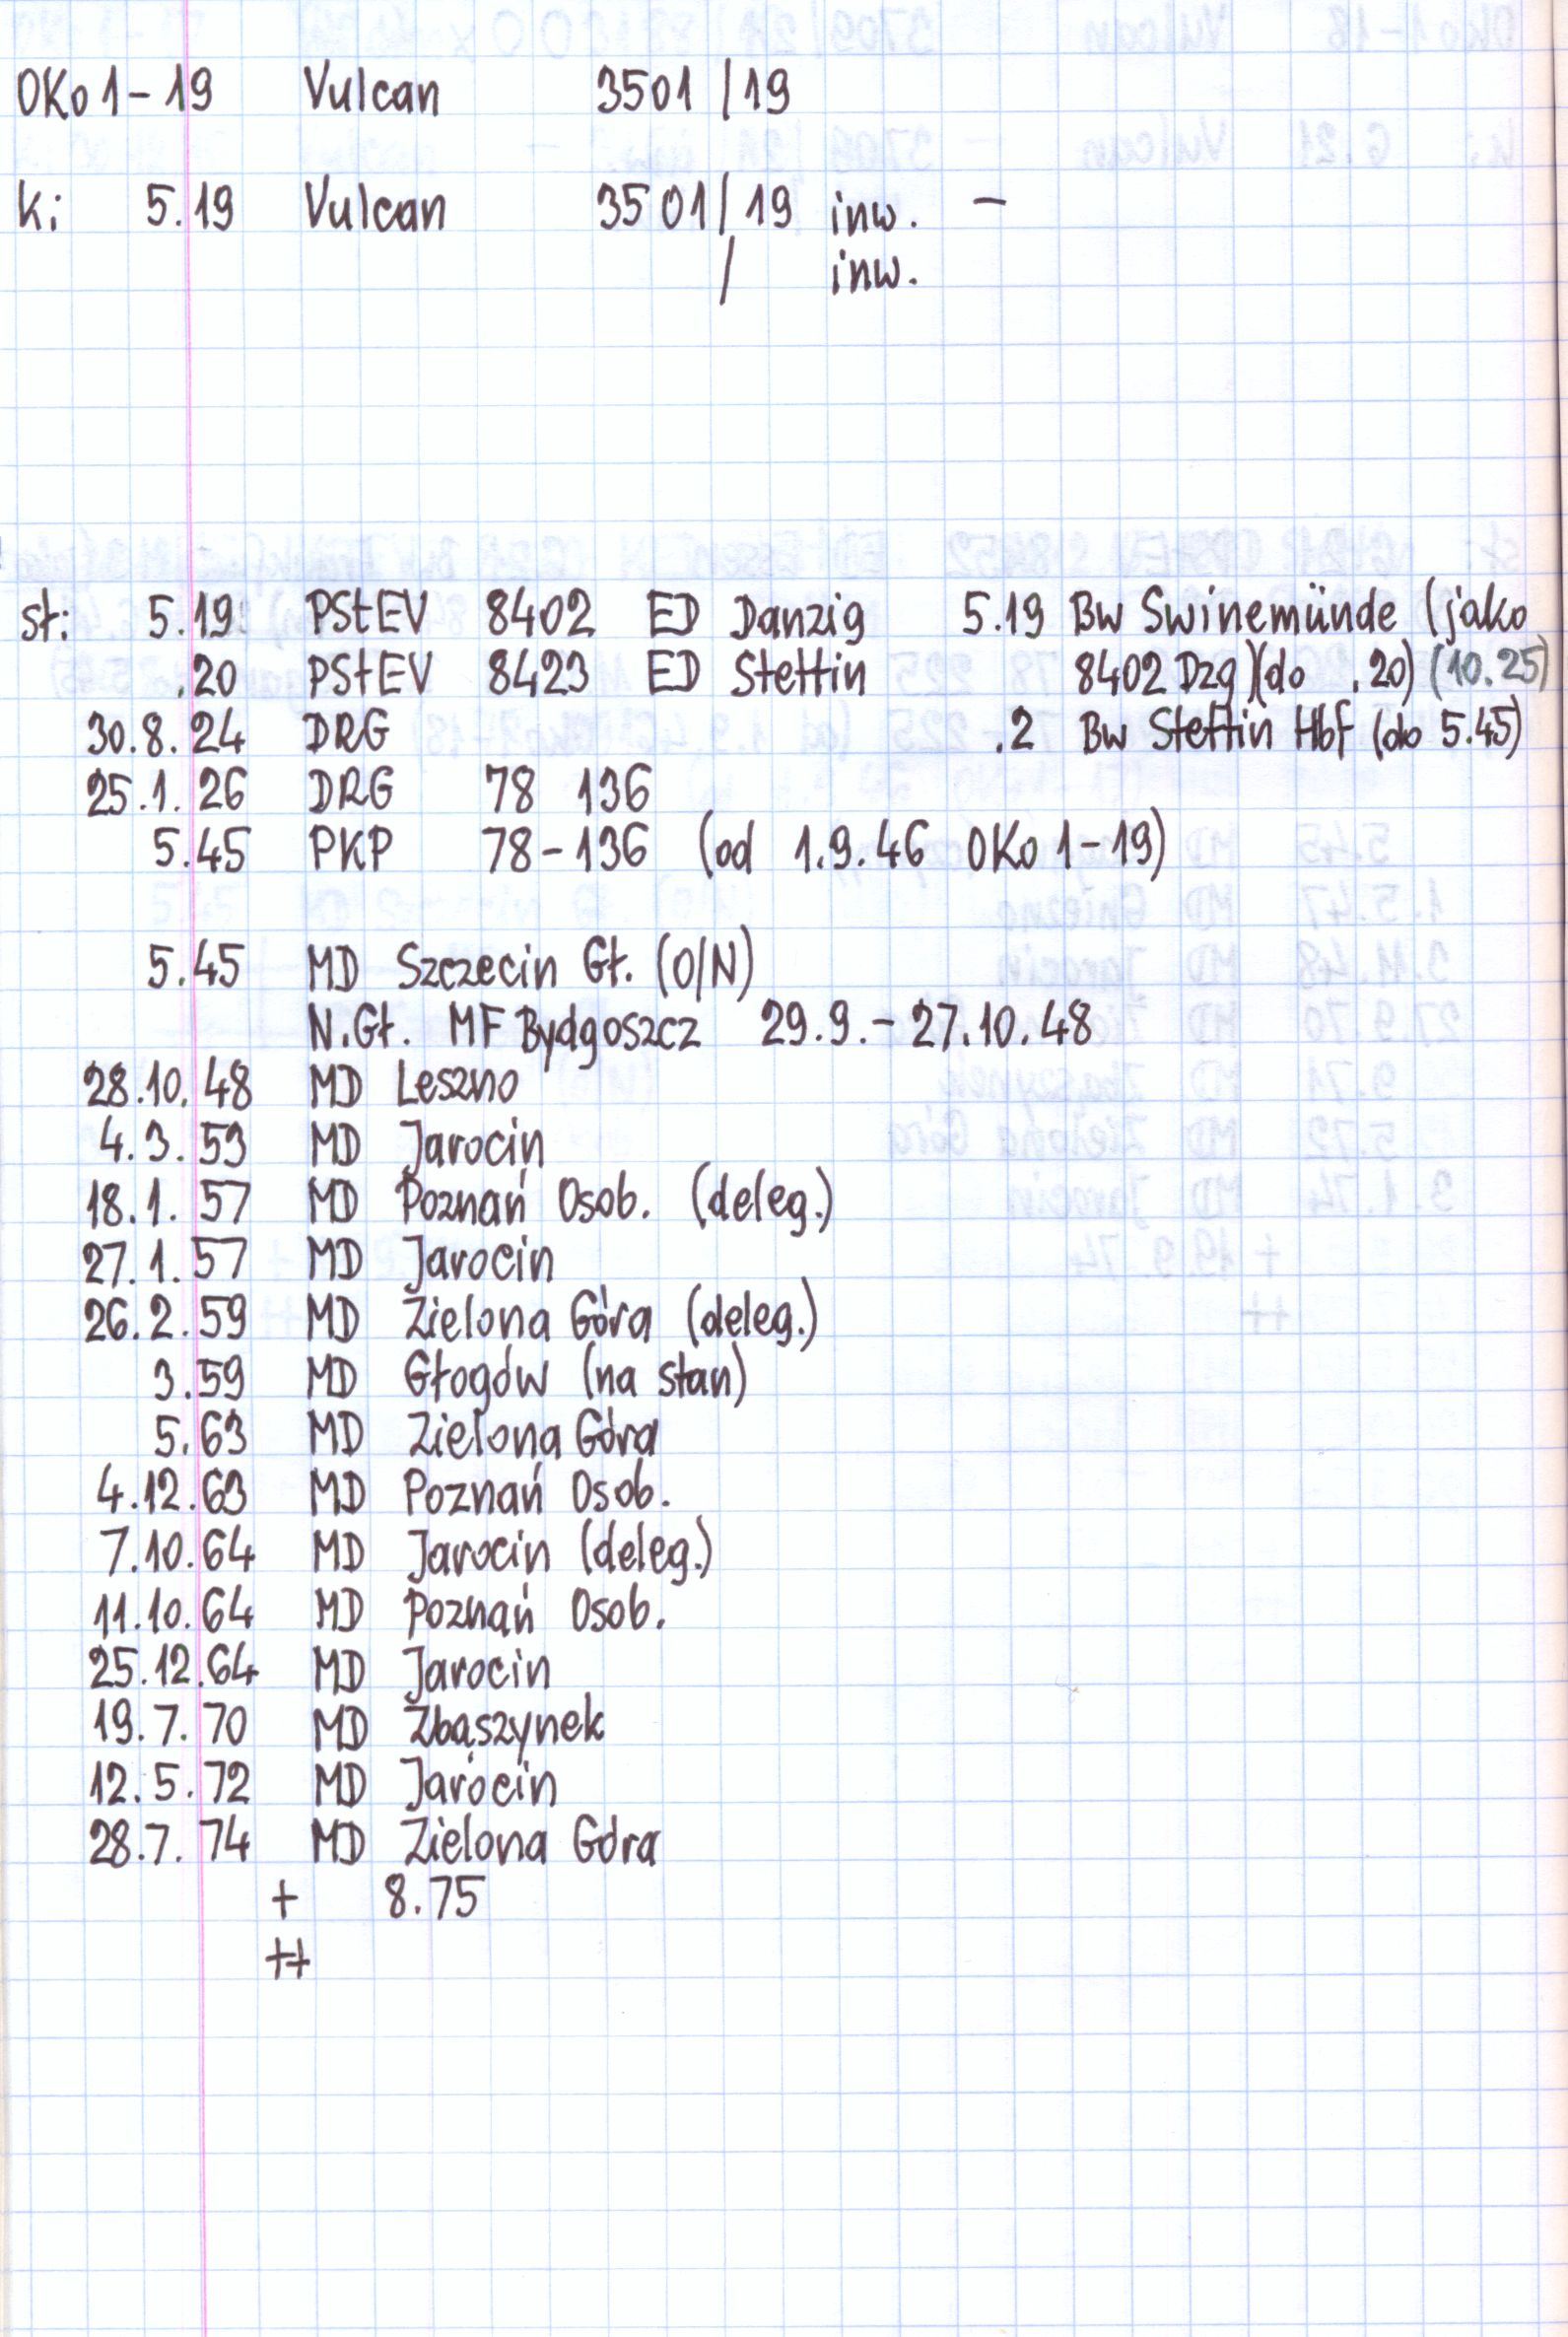 OKo1-19 Vulcan 3501/19
k: 5.19 Vulcan 3501/19 inw. -
/ inw.
st: 5.19 PStEV 8402 ED Danzig 5.19 Bw Swinemünde (jako
.20 PStEV 8423 ED Stettin 8402 Dzg)(do .20) (10.25)
30.8.24 DRG .2 Bw Stettin Hbf (do 5.45)
25.1.26 DRG 78 136
5.45 PKP 78-136 (od 1.9.46 OKo1-19)
5.45 MD Szczecin Gł. (O/N)
N.Gł. MF Bydgoszcz 29.9.-27.10.48
28.10.48 MD Leszno
4.3.53 MD Jarocin
18.1.57 MD Poznań Osob. (deleg.)
27.1.57 MD Jarocin
26.2.59 MD Zielona Góra (deleg.)
3.59 MD Głogów (na stan)
5.63 MD Zielona Góra
4.12.63 MD Poznań Osob.
7.10.64 MD Jarocin (deleg.)
11.10.64 MD Poznań Osob.
25.12.64 MD Jarocin
19.7.70 MD Zbąszynek
12.5.72 MD Jarocin
28.7.74 MD Zielona Góra
+ 8.75
++